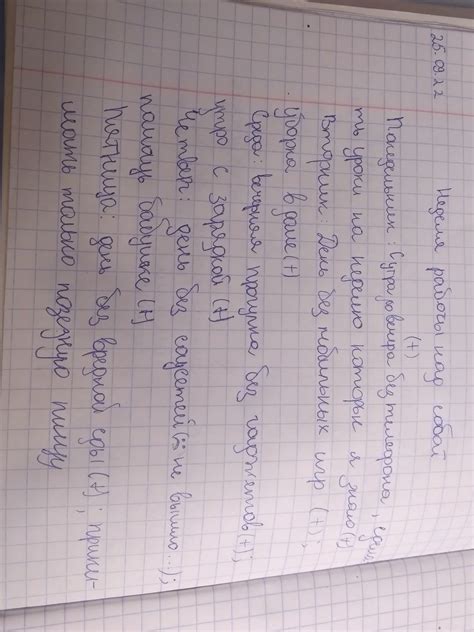 25.09.22
Неделя работы над собой
(+)
Понедельник: Сутра до вечера без телефона, сдела
ть уроки на неделю которые я знаю (+)
Вторник: День без мобильных игр (+);
Уборка в доме (+)
Среда: вечерняя прогулка без гаджетов (+);
утро с зарядкой (+)
Четверг: день без соцсетей (:( не вышло...);
помощь бабушке (+)
Пятница: день без вредной еды (+); прини-
мать только полезную пищу